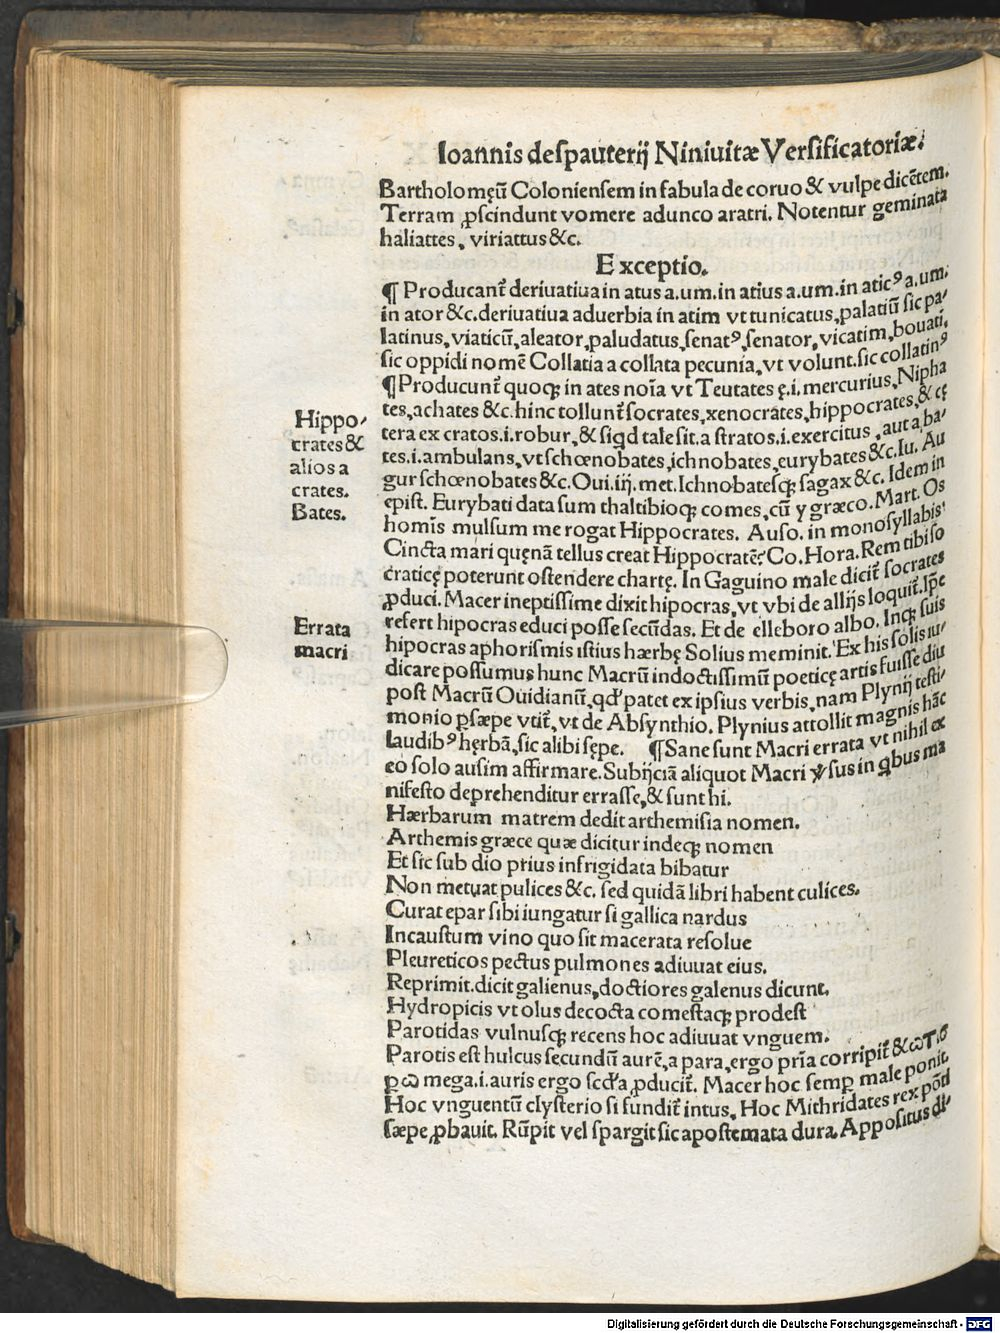 Ioannis despauterij Niniuitæ Versificatoriæ.
Bartholomęū Coloniensem in fabula de coruo & vulpe dicētem.
Terram ꝓscindunt vomere adunco aratri. Notentur geminata
haliattes, viriattus &c.
Exceptio.
¶ Producant᷑ deriuatiua in atus a.um.in atius a.um.in aticꝰ a.um.
in ator &c.deriuatiua aduerbia in atim vt tunicatus, palatiū sic pa-
latinus, viaticū, aleator, paludatus, senatꝰ, senator, vicatim, bouati,
sic oppidi nomē Collatia a collata pecunia, vt volunt.sic collatinꝰ
¶ Producunt᷑ quoqꝫ in ates noīa vt Teutates ę.i. mercurius, Nipha
tes, achates &c. hinc tollunt᷑ socrates, xenocrates, hippocrates, & cę
tera ex cratos.i.robur, & siqd tale sit. a stratos.i.exercitus, aut a ba-
tes.i.ambulans, vt schœnobates, ichnobates, eurybates &c. Iu. Au
gur schœnobates &c. Oui.iij. met. Ichnobatesqꝫ sagax &c. Idem in
epist. Eurybati data sum thaltibioqꝫ comes, cū y græco. Mart. Os
homīs mulsum me rogat Hippocrates. Auso. in monosyllabis
Cincta mari quęnā tellus creat Hippocratē? Co. Hora. Rem tibi so
craticę poterunt ostendere chartę. In Gaguino male dicit᷑ socrates
ꝓduci. Macer ineptissime dixit hipocras, vt vbi de allijs loquit᷑. Ip̄e
refert hipocras educi posse secūdas. Et de elleboro albo. Inqꝫ suis
hipocras aphorismis istius hærbę Solius meminit. Ex his solis iu-
dicare possumus hunc Macrū indoctissimū poeticę artis fuisse diu
post Macrū Ouidianū, qd' patet ex ipsius verbis, nam Plynij testi-
monio ꝑsæpe vtit᷑, vt de Absynthio. Plynius attollit magnis hāc
laudibꝰ hęrbā, sic alibi sępe. ¶ Sane sunt Macri errata vt nihil ex
eo solo ausim affirmare. Subijciā aliquot Macri ꝟsus in qbus ma
nifesto deprehenditur errasse, & sunt hi.
Hærbarum matrem dedit arthemisia nomen.
Arthemis græce quæ dicitur indeqꝫ nomen
Et sic sub dio prius infrigidata bibatur
Non metuat pulices &c. sed quidā libri habent culices.
Curat epar sibi iungatur si gallica nardus
Incaustum vino quo sit macerata resolue
Pleureticos pectus pulmones adiuuat eius.
Reprimit.dicit galienus, doctiores galenus dicunt.
Hydropicis vt olus decocta comestaqꝫ prodest
Parotidas vulnusqꝫ recens hoc adiuuat vnguem.
Parotis est hulcus secundū aurē, a para, ergo pr̄ia corripit᷑ & ωτ.ος
ꝑ ω mega.i.auris ergo scd'a ꝓducit᷑. Macer hoc semꝑ male ponit.
Hoc vnguentū clysterio si fundit᷑ intus, Hoc Mithridates rex pōti
sæpe ꝓbauit. Rūpit vel spargit sic apostemata dura. Appositus di-
Hippo-
crates &
alios a
crates.
Bates.
Errata
macri
Digitalisierung gefördert durch die Deutsche Forschungsgemeinschaft - DFG